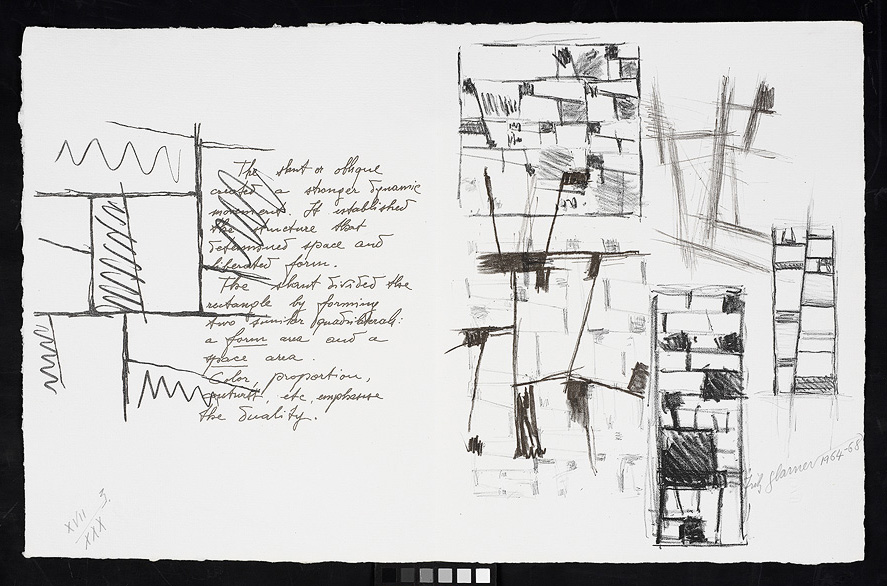 The slant or oblique
created a stronger dynamic
movement. It established
the structure that
determined space and
liberated form.
The slant divided the
rectangle by forming
two similar quadrilaterals:
a form area and a
space area.
Color, proportion,
etc, emphasise
the duality.
Fritz Glarner 1964-68
XVII
XXX
3.